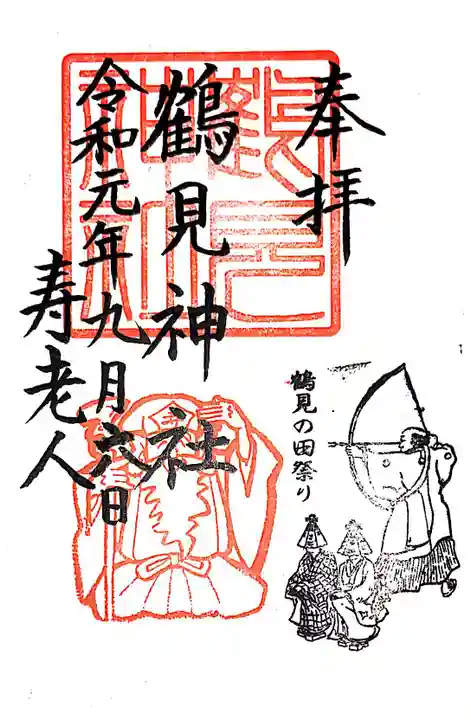 奉拝
鶴見神社
令和元年九月六日
寿老人
鶴見の田祭り